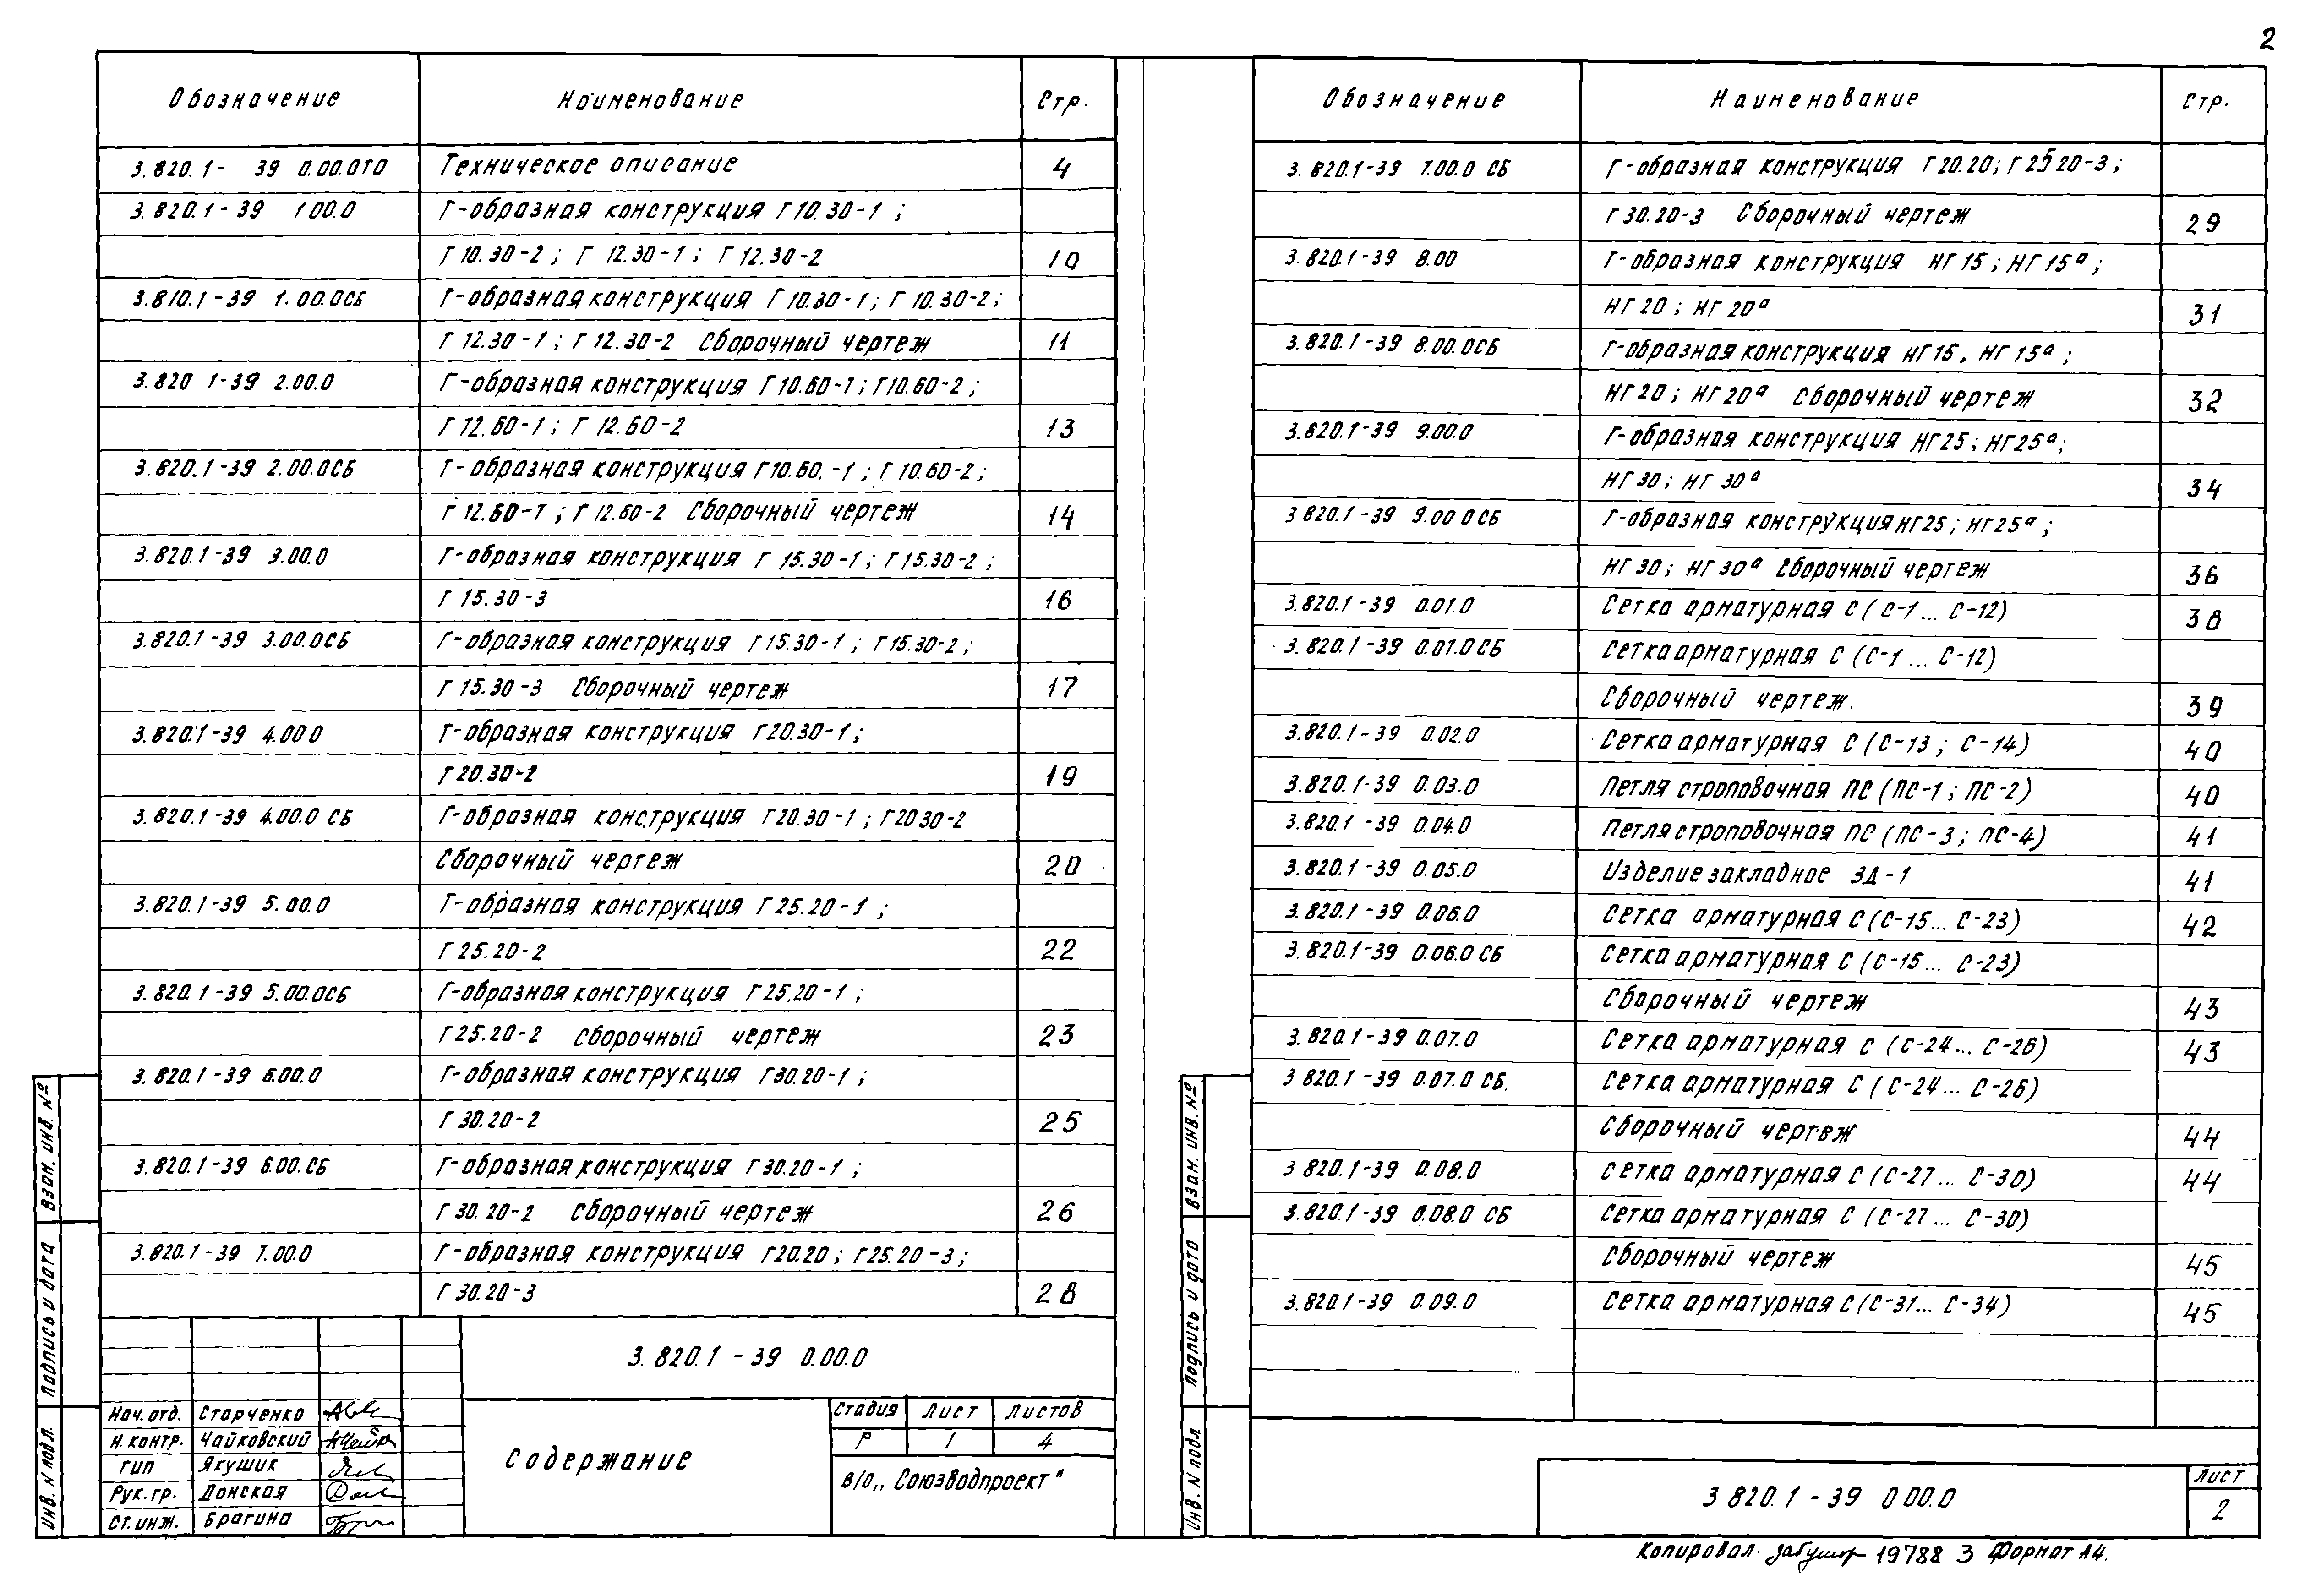 2
Обозначение Наименование Стр.
3.820.1- 39 0.00.0ТО Техническое описание 4
3.820.1-39 1 00.0 Г-образная конструкция Г10.30-1;
Г 10.30-2; Г 12.30-1; Г 12.30-2 10
3.810.1-39 1.00.0СБ Г-образная конструкция Г10.30-1; Г 10.30-2;
Г 12.30-1; Г 12.30-2 Сборочный чертеж 11
3.820 1-39 2.00.0 Г-образная конструкция Г10.60-1; Г10.60-2;
Г 12.60-1; Г 12.60-2 13
3.820.1-39 2.00.0СБ Г-образная конструкция Г10.60.-1; Г 10.60-2;
Г 12.60-1; Г 12.60-2 Сборочный чертеж 14
3.820.1-39 3.00.0 Г-образная конструкция Г 15.30-1; Г15.30-2;
Г 15.30-3 16
3.820.1-39 3.00.0СБ Г-образная конструкция Г15.30-1; Г15.30-2;
Г 15.30-3 Сборочный чертеж 17
3.820.1-39 4.00 0 Г-образная конструкция Г20.30-1;
Г20.30-2 19
3.820.1-39 4.00.0 СБ Г-образная конструкция Г20.30-1; Г20 30-2
Сборочный чертеж 20
3.820.1-39 5.00.0 Г-образная конструкция Г25.20-1;
Г25.20-2 22
3.820.1-39 5.00.0СБ Г-образная конструкция Г25.20-1;
Г25.20-2 Сборочный чертеж 23
3.820.1-39 6.00.0 Г-образная конструкция Г30.20-1;
Г 30.20-2 25
3.820.1-39 6.00.СБ Г-образная конструкция Г30.20-1;
Г 30.20-2 Сборочный чертеж 26
3.820.1-39 7.00.0 Г-образная конструкция Г20.20; Г25.20-3;
Г 30.20-3 28
3.820.1-39 0.00.0
Нач.отд. Старченко
Н.контр. Чайковский
ГИП Якушик
Рук.гр. Донская
Ст.инж. Брагина
Содержание
Стадия Лист Листов
Р 1 4
в/о „Союзводпроект"
Взам. инв. №
Подпись и дата
Инв. N подл.
Обозначение Наименование Стр.
3.820.1-39 7.00.0 СБ Г-образная конструкция Г20.20; Г25 20-3;
Г30.20-3 Сборочный чертеж 29
3.820.1-39 8.00 Г-образная конструкция НГ15; НГ15а;
НГ20; НГ20а 31
3.820.1-39 8.00.0СБ Г-образная конструкция НГ15, НГ15а;
НГ20; НГ20а Сборочный чертеж 32
3.820.1-39 9.00.0 Г-образная конструкция НГ25; НГ25а;
НГ30; НГ30а 34
3 820.1-39 9.00 0СБ Г-образная конструкция НГ25; НГ25а;
НГ30; НГ30а Сборочный чертеж 36
3.820.1-39 0.01.0 Сетка арматурная С (С-1... С-12) 38
3.820.1-39 0.01.0СБ Сетка арматурная С (С-1 ... С-12)
Сборочный чертеж. 39
3.820.1-39 0.02.0 Сетка арматурная С (С-13; С-14) 40
3.820.1-39 0.03.0 Петля строповочная ПС (ПС-1; ПС-2) 40
3.820.1-39 0.04.0 Петля строповочная ПС (ПС-3; ПС-4) 41
3.820.1-39 0.05.0 Изделие закладное ЗД-1 41
3.820.1-39 0.06.0 Сетка арматурная С (С-15... С-23) 42
3.820.1-39 0.06.0СБ Сетка арматурная С (С-15... С-23)
Сборочный чертеж 43
3.820.1-39 0.07.0 Сетка арматурная С (С-24... С-26) 43
3 820.1-39 0.07.0 СБ. Сетка арматурная С (С-24... С-26)
Сборочный чертеж 44
3 820.1-39 0.08.0 Сетка арматурная С (С-27... С-30) 44
3.820.1-39 0.08.0 СБ Сетка арматурная С (С-27... С-30)
Сборочный чертеж 45
3.820.1-39 0.09.0 Сетка арматурная С (С-31... С-34) 45
3 820.1-39 0 00.0
Лист
2
Взам. инв. №
Подпись и дата
Инв. N подл
Копировал. 19788 3 Формат А4.